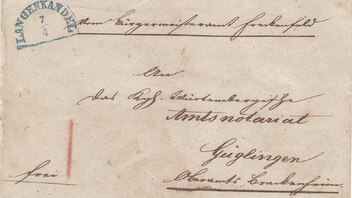 LANGENKANDEL
7
4
Vom Bürgermeisteramt Freckenfeld
An
das Kgl. Würtembergische
Amtsnotariat
Güglingen
Oberamts Brackenheim.
frei